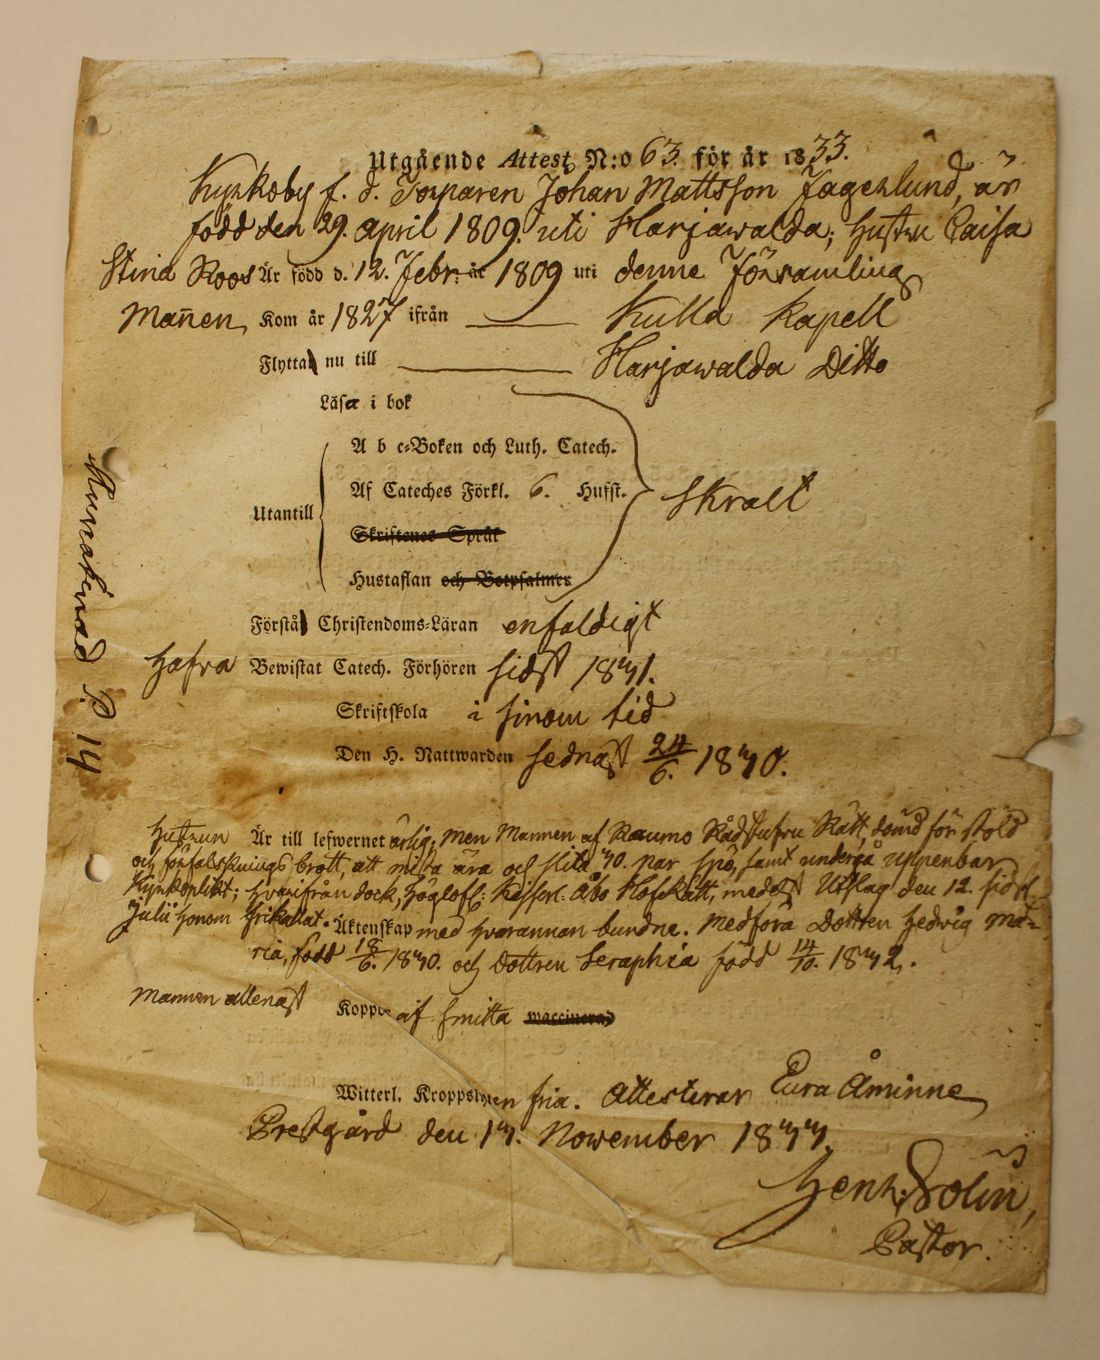 Utgående Attest N:o 63. för år 1833.
Kyrkoby f. d. Torparen Johan Mattsson Fagerlund, är
född den 29. april 1809. uti Harjawalda; hustru Caisa
Stina Roos Är född d. 12. Febr: år 1809 uti denne Församling
Mañen Kom år 1827 ifrån Kulla Kapell
Flytta nu till Harjawalda Ditto
Läsa i bok
A b c=Boken och Luth. Catech.
Af Cateches Förkl. 6. Hufst. Skralt
Utantill
Skriftenes Språk
Hustaflan och Botpsalmer
Förstå Christendoms=Läran enfaldigt
Hafva Bewistat Catech. Förhören sidst 1841.
Skriftskola i sinom tid
Den H. Nattwarden sednast 24/6. 1840.
Hustrun Är till lefwernet ärlig, Men Mannen af Raumo Rådstufvu Rätt, dömd för stöld
och förfalsknings brott, att mista ära och slita 40. par spö, samt undergå uppenbar
Kyrkoplikt; hvarifrån dock, höglofl: Kejserl. Åbo Hofrätt, medelst Utslag den 12. sidstl.
Julii honom frikallat. Äktenskap med hvarannan bundne. Medföra Dottren Hedvig Ma=
ria, född 18/6. 1840. och Dottren Seraphia född 14/10. 1842.
Mannen allenast Koppor af smitta waccinerad
Witterl. Kroppslyten fria. Attesterar Eura Åminne
Prestgård den 14. November 1844.
Henr: Solin,
Pastor.
P. 14